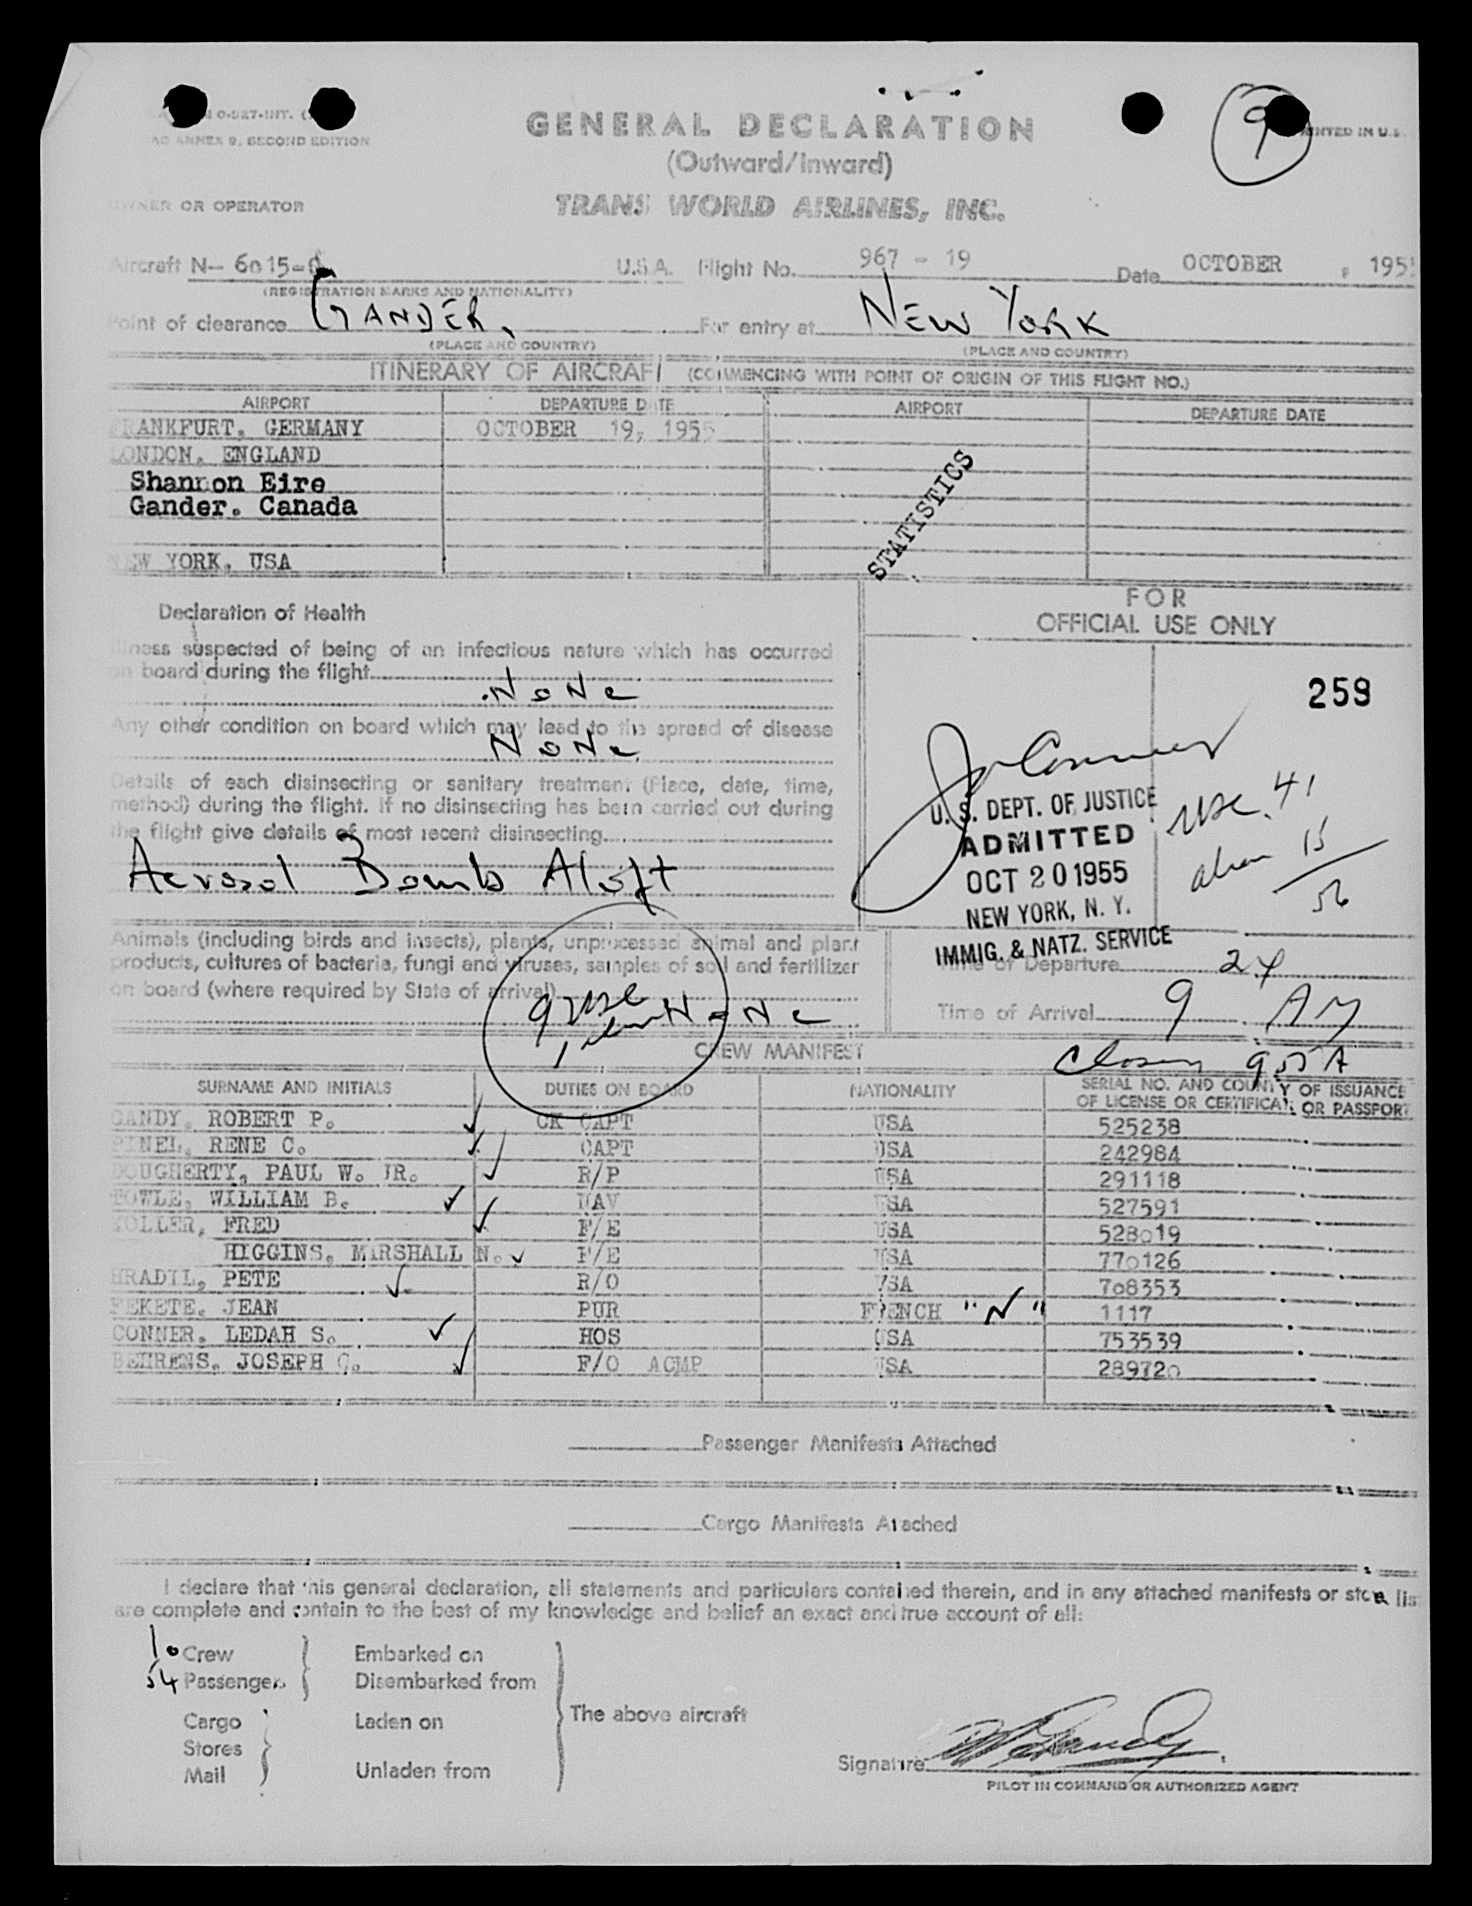 ANNEX 9, SECOND EDITION
GENERAL DECLARATION
(Outward/Inward)
9
PRINTED IN U.S.
OWNER OR OPERATOR
TRANS WORLD AIRLINES, INC.
Aircraft N- 6015-C U.S.A. Flight No. 967 - 19 Date OCTOBER , 1955
(REGISTRATION MARKS AND NATIONALITY)
Point of clearance GANDER. For entry at NEW YORK
(PLACE AND COUNTRY) (PLACE AND COUNTRY)
ITINERARY OF AIRCRAFT (COMMENCING WITH POINT OF ORIGIN OF THIS FLIGHT NO.)
AIRPORT DEPARTURE DATE AIRPORT DEPARTURE DATE
FRANKFURT, GERMANY OCTOBER 19, 1955
LONDON, ENGLAND
Shannon Eire
Gander. Canada
NEW YORK, USA
STATISTICS
Declaration of Health
Illness suspected of being of an infectious nature which has occurred
on board during the flight
NoNe
Any other condition on board which may lead to the spread of disease
NoNe
Details of each disinsecting or sanitary treatment (Place, date, time,
method) during the flight. If no disinsecting has been carried out during
the flight give details of most recent disinsecting
Aerosol Bomb Aloft
Animals (including birds and insects), plants, unprocessed animal and plant
products, cultures of bacteria, fungi and viruses, samples of soil and fertilizer
on board (where required by State of arrival)
NoNe
9 usc
1
FOR
OFFICIAL USE ONLY
259
U. S. DEPT. OF JUSTICE
ADMITTED
OCT 20 1955
NEW YORK, N. Y.
IMMIG. & NATZ. SERVICE
usc. 41
alien 15
56
Time of Departure 24
Time of Arrival 9 AM
Closed 955A
CREW MANIFEST
SURNAME AND INITIALS DUTIES ON BOARD NATIONALITY SERIAL NO. AND COUNTY OF ISSUANCE
OF LICENSE OR CERTIFICATE OR PASSPORT
GANDY, ROBERT P. CK CAPT USA 525238
PINEL, RENE C. CAPT USA 242984
DOUGHERTY, PAUL W. JR. R/P USA 291118
TOWLE, WILLIAM B. NAV USA 527591
TOLLER, FRED F/E USA 528019
HIGGINS, MARSHALL N. F/E USA 770126
HRADIL, PETE R/O USA 708353
FEKETE, JEAN PUR FRENCH "N" 1117
CONNER, LEDAH S. HOS USA 753539
BEHRENS, JOSEPH C. F/O ACMP USA 289720
Passenger Manifests Attached
Cargo Manifests Attached
I declare that this general declaration, all statements and particulars contained therein, and in any attached manifests or store lis
are complete and contain to the best of my knowledge and belief an exact and true account of all:
10 Crew Embarked on
54 Passengers Disembarked from
The above aircraft
Cargo Laden on
Stores
Mail Unladen from
Signature
PILOT IN COMMAND OR AUTHORIZED AGENT